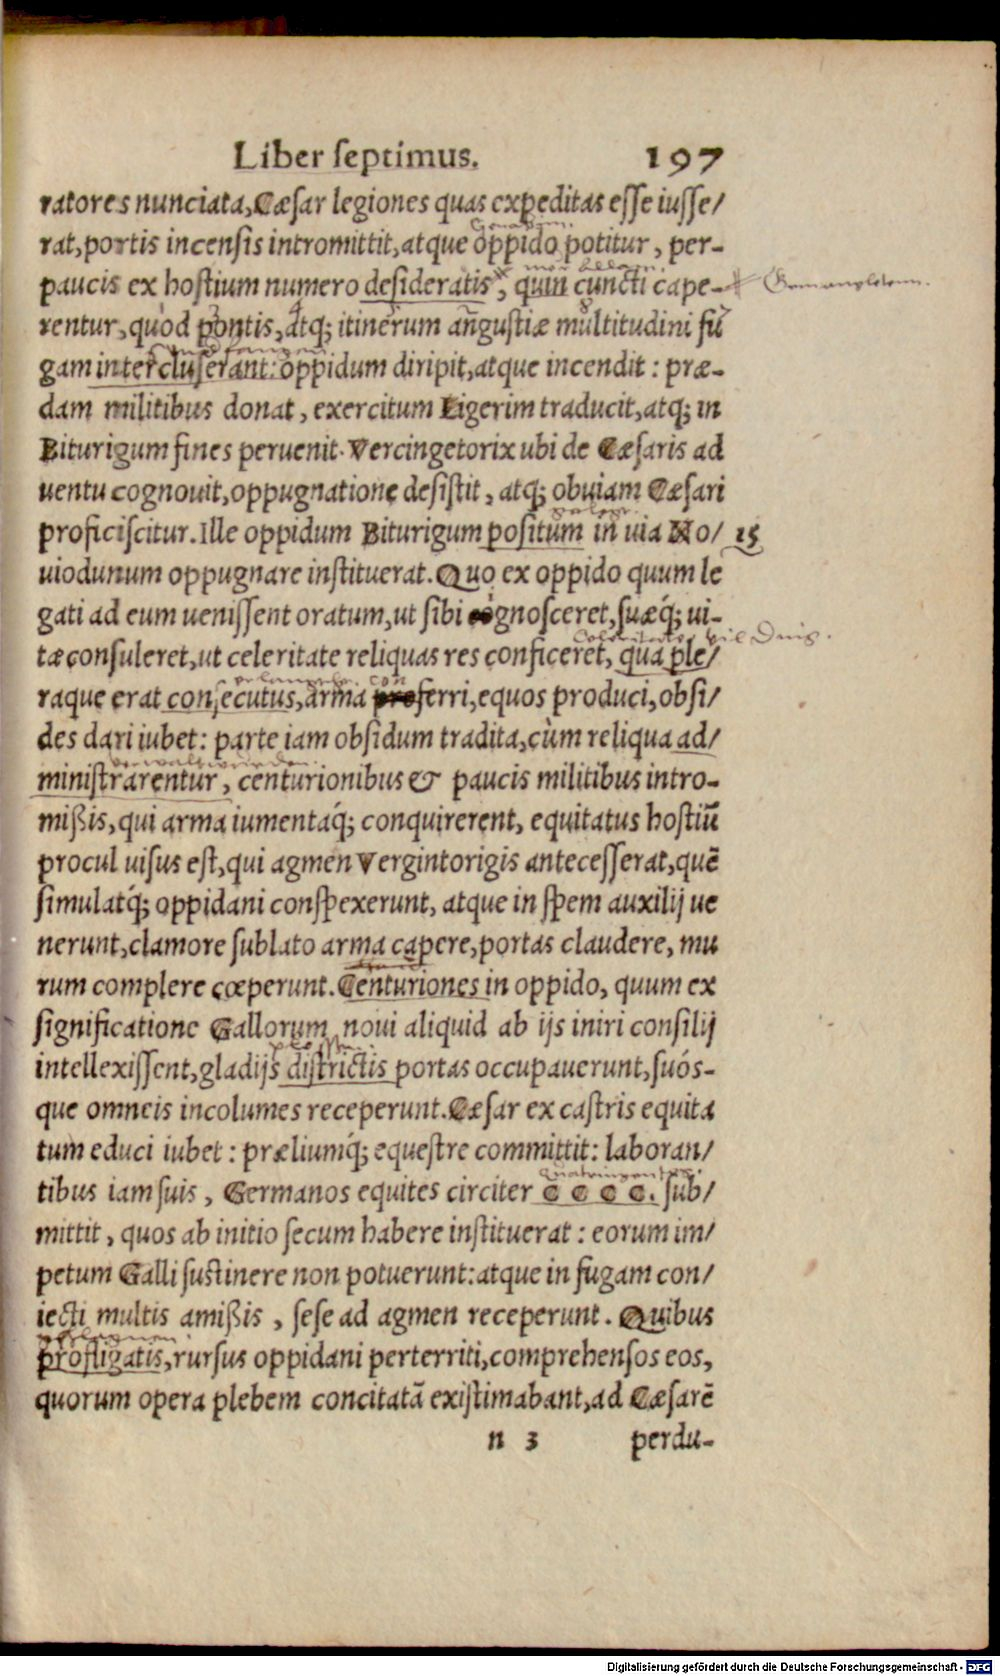 Liber ſeptimus. 197
ratores nunciata, Cæſar legiones quas expeditas eſſe iuſſe/
Genabum.
rat, portis incenſis intromittit, atque oppido potitur, per-
paucis ex hoſtium numero deſideratis, quin cuncti cape-
rentur, quòd pontis, atq; itinerum anguſtiæ multitudini fu
gam intercluſerant: oppidum diripit, atque incendit: præ-
dam militibus donat, exercitum Ligerim traducit, atq; in
Biturigum fines peruenit. Vercingetorix ubi de Cæſaris ad
uentu cognouit, oppugnatione deſiſtit, atq; obuiam Cæſari
proficiſcitur. Ille oppidum Biturigum poſitum in uia No/ 15
uiodunum oppugnare inſtituerat. Quo ex oppido quum le
gati ad eum ueniſſent oratum, ut ſibi ignoſceret, ſuæq́; ui-
tæ conſuleret, ut celeritate reliquas res conficeret, qua ple/
con
raque erat conſecutus, arma proferri, equos produci, obſi/
des dari iubet: parte iam obſidum tradita, cùm reliqua ad/
verwalt würden
miniſtrarentur, centurionibus & paucis militibus intro-
mißis, qui arma iumentáq; conquirerent, equitatus hoſtiũ
procul uiſus eſt, qui agmen Vergintorigis anteceſſerat, quẽ
ſimulatq́; oppidani conſpexerunt, atque in ſpem auxilij ue
nerunt, clamore ſublato arma capere, portas claudere, mu
rum complere cœperunt. Centuriones in oppido, quum ex
ſignificatione Gallorum noui aliquid ab ijs iniri conſilij
intellexiſſent, gladijs diſtrictis portas occupauerunt, ſuós-
que omneis incolumes receperunt. Cæſar ex caſtris equita
tum educi iubet: præliumq́; equeſtre committit: laboran/
quadringentos
tibus iam ſuis, Germanos equites circiter CCCC. ſub/
mittit, quos ab initio ſecum habere inſtituerat: eorum im/
petum Galli ſuſtinere non potuerunt: atque in fugam con/
iecti multis amißis, ſeſe ad agmen receperunt. Quibus
profligatis, rurſus oppidani perterriti, comprehenſos eos,
quorum opera plebem concitatã exiſtimabant, ad Cæſarẽ
n 3 perdu-
Digitalisierung gefördert durch die Deutsche Forschungsgemeinschaft - DFG